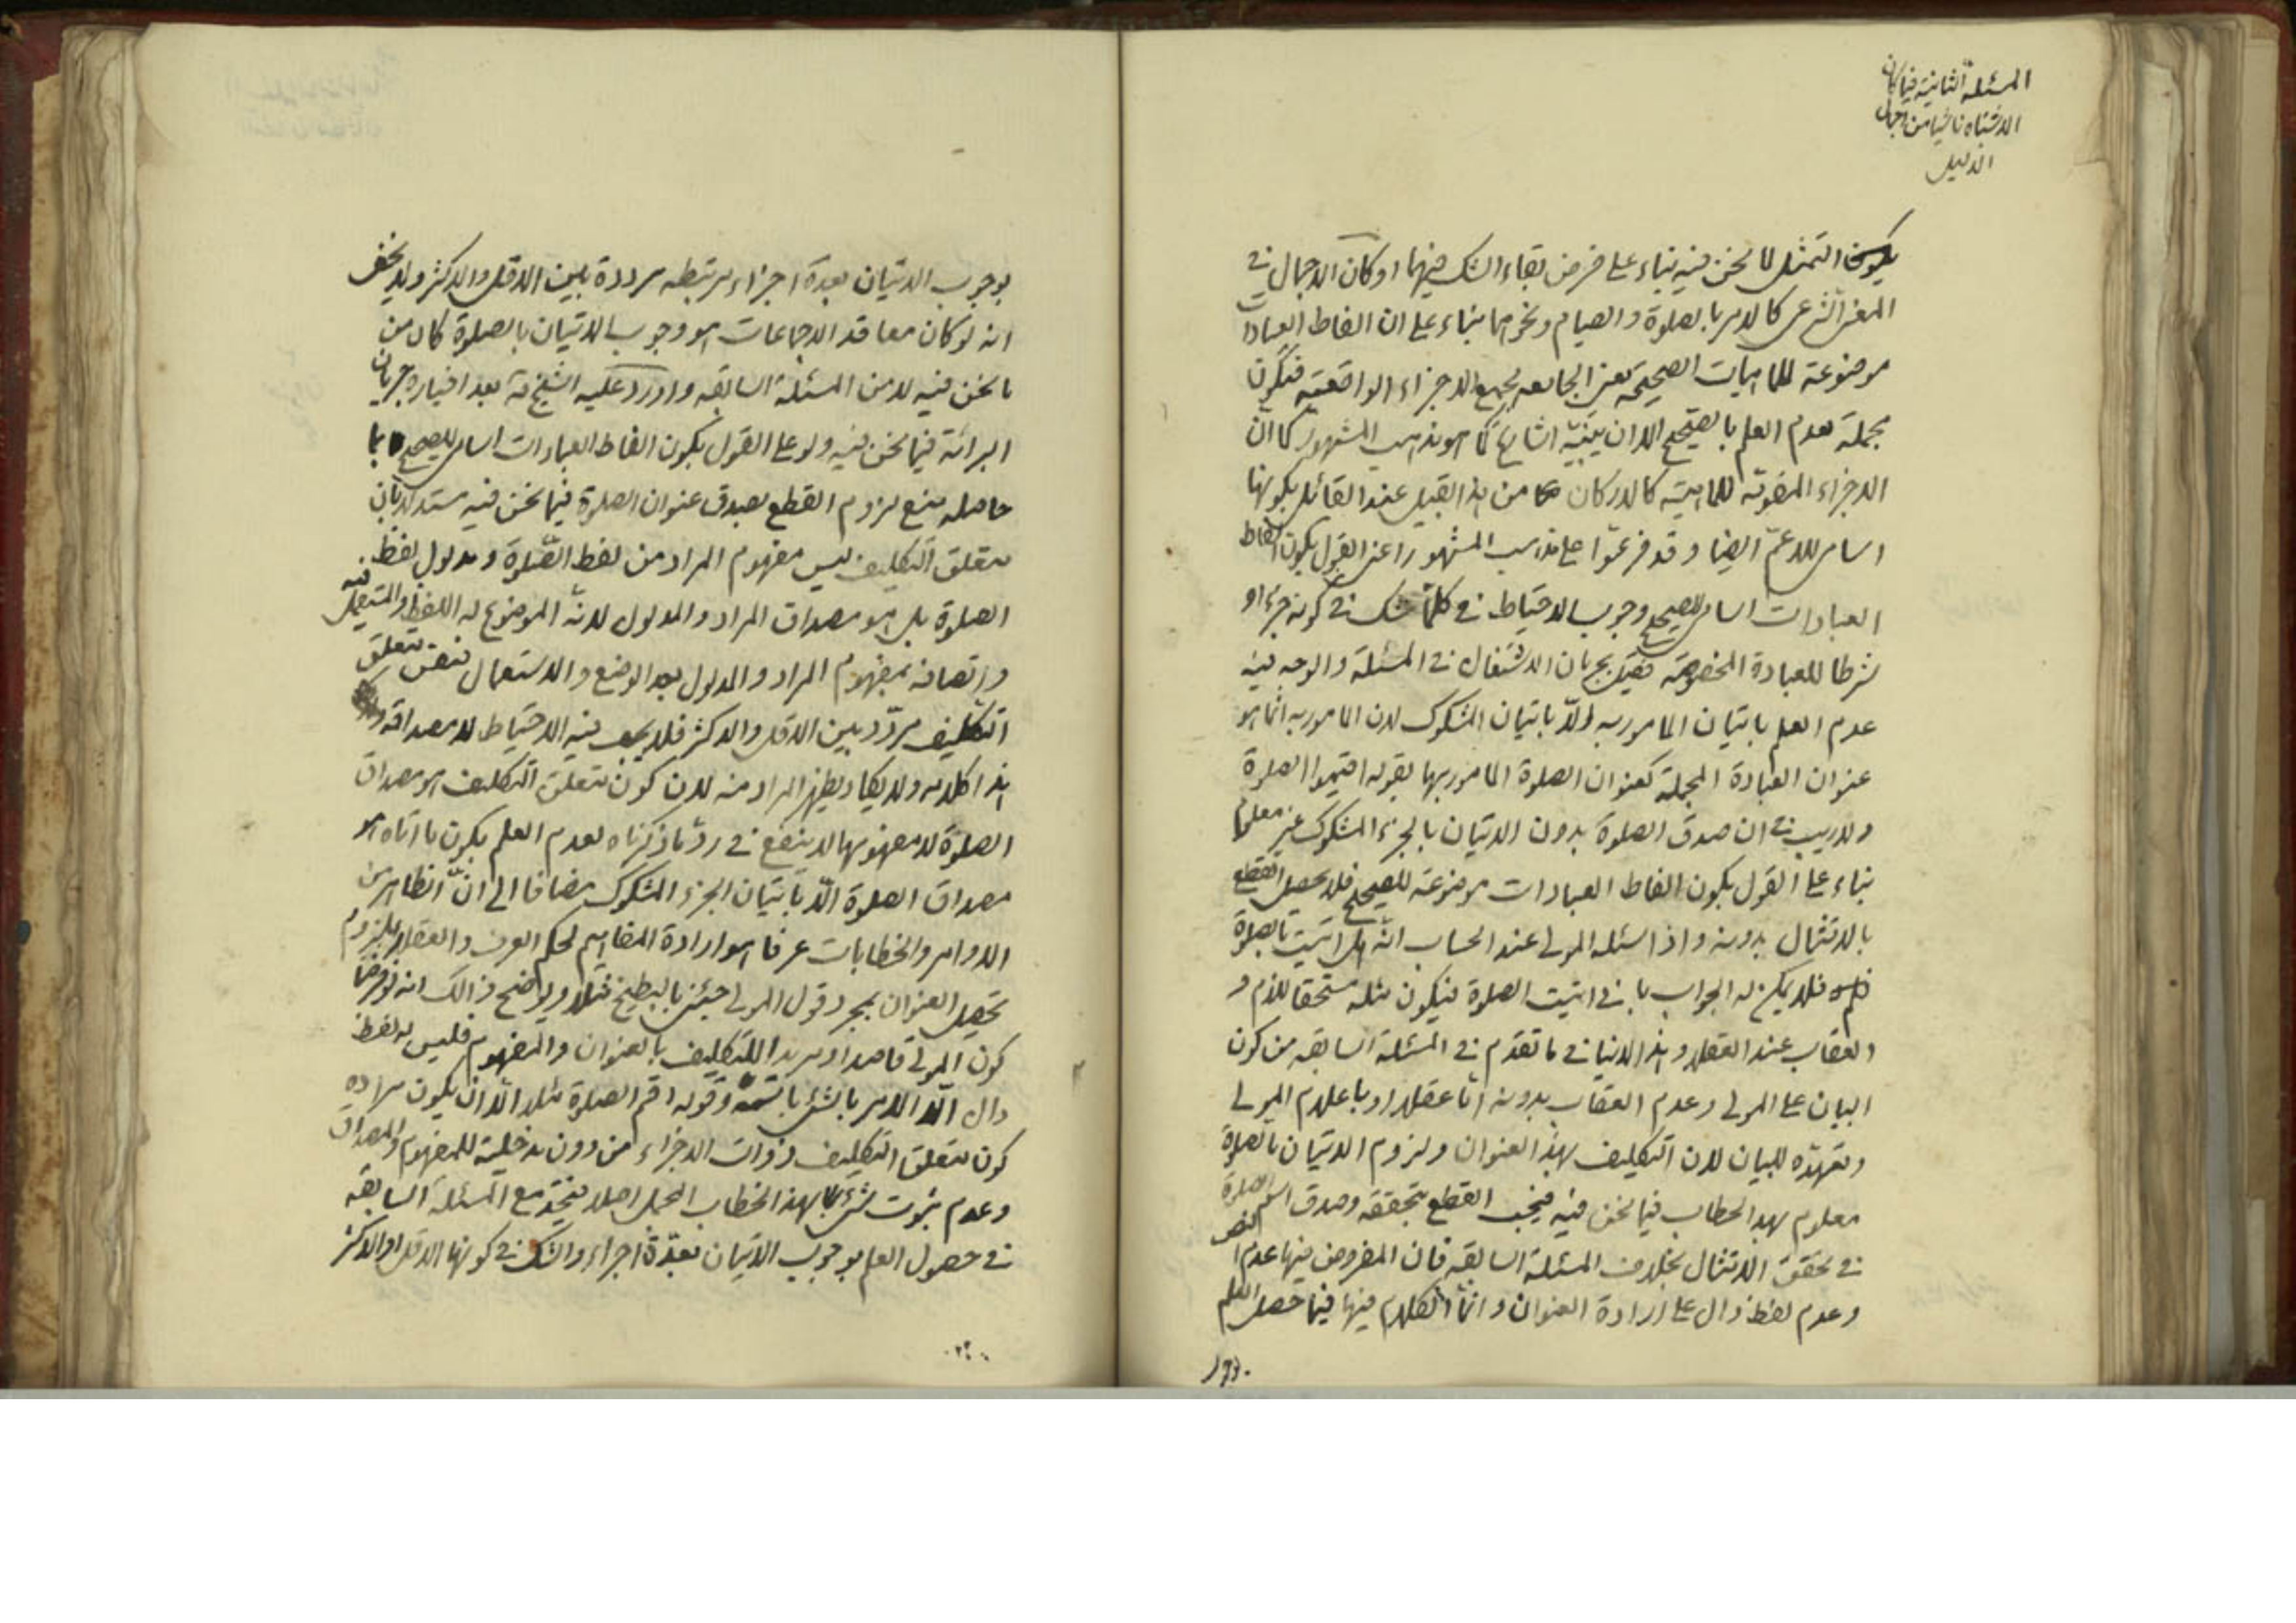 المسئلة الثانية فيما كان
الاشتباه ناشيا من اجمال
الدليل
يكون التمثيل لما نحن فيه بناء على فرض بقاء الشك فيهما او كان الاجمال في
المعنى الشرعى كالامر بالصلوة والصيام ونحوهما بناء على ان الفاظ العبادات
موضوعة للماهيات الصحيحة يعنى الجامعه لجميع الاجزاء الواقعية فتكون
مجملة لعدم العلم بالصحيح الا ان يبيّنه الشارع كما هو مذهب المشهور كما انّ
الاجزاء المقومة للماهية كالاركان من هذا القبيل عند القائل بكونها
اسامى للاعمّ ايضا وقد فرعوا على مذهب المشهور اعنى القول بكون الفاظ
العبادات اسامى للصحيح وجوب الاحتياط في كلما شك في كونه جزء او
شرطا للعبادة المخصوصة بجريان الاشتغال في المسئلة والوجه فيه
عدم العلم باتيان المامور به الّا باتيان المشكوك لان المامور به انما هو
عنوان العبادة المجملة كعنوان الصلوة المامور بها بقوله اقيموا الصلوة
ولا ريب في ان صدق الصلوة بدون الاتيان بالجزء المشكوك غير معلوم
بناء على القول بكون الفاظ العبادات موضوعة للصحيح فلا يحصل القطع
بالامتثال بدونه واذا سئله المولى عند الحساب انّه هل اتيت بالصلوة
فلا يمكن له الجواب بانى اتيت الصلوة فيكون مثله مستحقا للذم و
العقاب عند العقلاء وهذا لا ينافى ما تقدم في المسئلة السابقه من كون
البيان على المولى وعدم العقاب بدونه امّا عقلا او باعلام المولى
وتعهدّه للبيان لان التكليف بهذا العنوان ولزوم الاتيان بالصلوة
معلوم بهذا الخطاب فيما نحن فيه فيجب القطع بتحققه وصدق اسم الصلوة
في تحقق الامتثال بخلاف المسئلة السابقه فان المفروض فيها عدم النص
وعدم لفظ دال على ارادة العنوان وانما الكلام فيها فيما حصل العلم
بوجوب الاتيان بعدة اجزاء مرتبطه مرددة بين الاقل والاكثر ولا يخفى
انه لو كان معاقد الاجماعات هو وجوب الاتيان بالصلوة كان من
ما نحن فيه لا من المسئلة السابقه واورد عليه الشيخ ره بعد اختياره جريان
البرائة فيما نحن فيه ولو على القول بكون الفاظ العبادات اسامى للصحيح بما
حاصله منع لزوم القطع بصدق عنوان الصلوة فيما نحن فيه مستدلا بان
متعلق التكليف ليس مفهوم المراد من لفظ الصّلوة ومدلول لفظ
الصلوة بل هو مصداق المراد والمدلول لانّه الموضوع له اللفظ والمستعمل فيه
واتصافه بمفهوم المراد والمدلول بعد الوضع والاستعمال فنفس متعلق
التكليف مردّد بين الاقل والاكثر فلا يجب فيه الاحتياط لا مصداقه
هذا كلامه ولا يكاد يظهر المراد منه لان كون متعلق التكليف هو مصداق
الصلوة لا مفهومها لا ينفع في ردّ ما ذكرناه لعدم العلم بكون ما اتاه هو
مصداق الصلوة الّا باتيان الجزء المشكوك مضافا الى انّ الظاهر من
الاوامر والخطابات عرفا هو ارادة المفاهيم لحكم العرف والعقلاء بلزوم
تحصيل العنوان بمجرد قول المولى جئنى بالبطيخ مثلا ويوضح ذالك انه لو فرضنا
كون المولى قاصدا ومريدا للتكليف بالعنوان والمفهوم فليس له لفظ
دال الّا الامر بالشئ باسمه وقوله اقم الصلوة مثلا الّا ان يكون مراده
كون متعلق التكليف ذوات الاجزاء من دون مدخلية للمفهوم والمصداق
وعدم ثبوت شئ بهذا الخطاب المجمل اصلا فيتحد مع المسئلة السابقه
في حصول العلم بوجوب الاتيان بعدّة اجزاء والشك في كونها الاقل او الاكثر